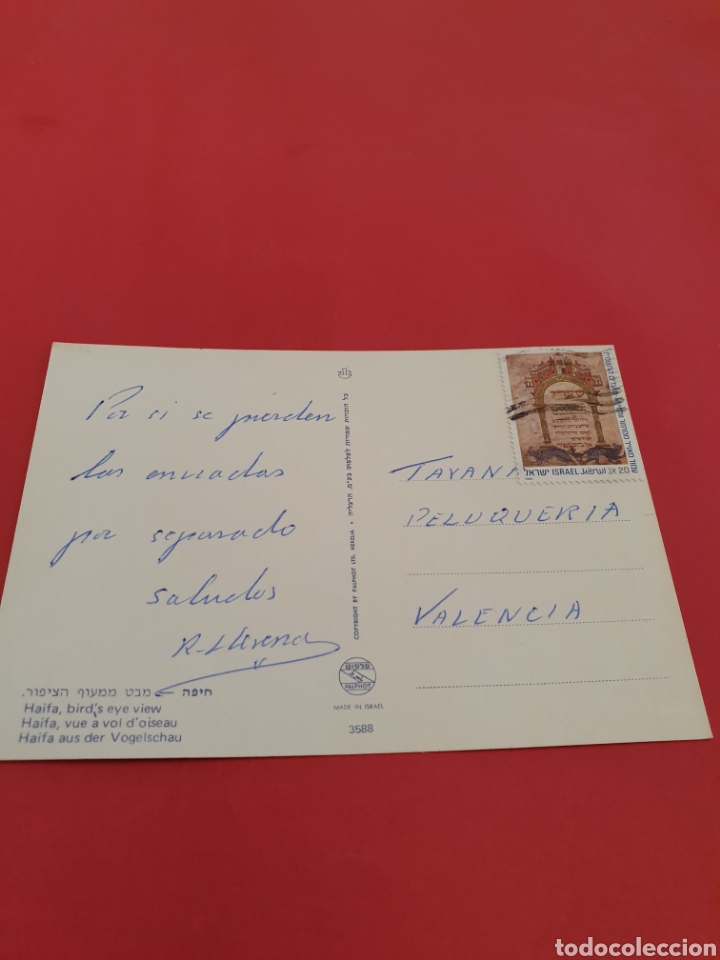 Por si se pierden
las enviadas
por separado
saludos
חיפה – מבט ממעוף הציפור.
Haifa, bird's eye view
Haifa, vue a vol d'oiseau
Haifa aus der Vogelschau
כל הזכויות שמורות לפלפוט בע"מ, הרצליה • COPYRIGHT BY PALPHOT LTD. HERZLIA
פלפוט
PALPHOT
MADE IN ISRAEL
3588
ישראל ISRAEL 20
TAYANA
PELUQUERIA
VALENCIA
todocoleccion